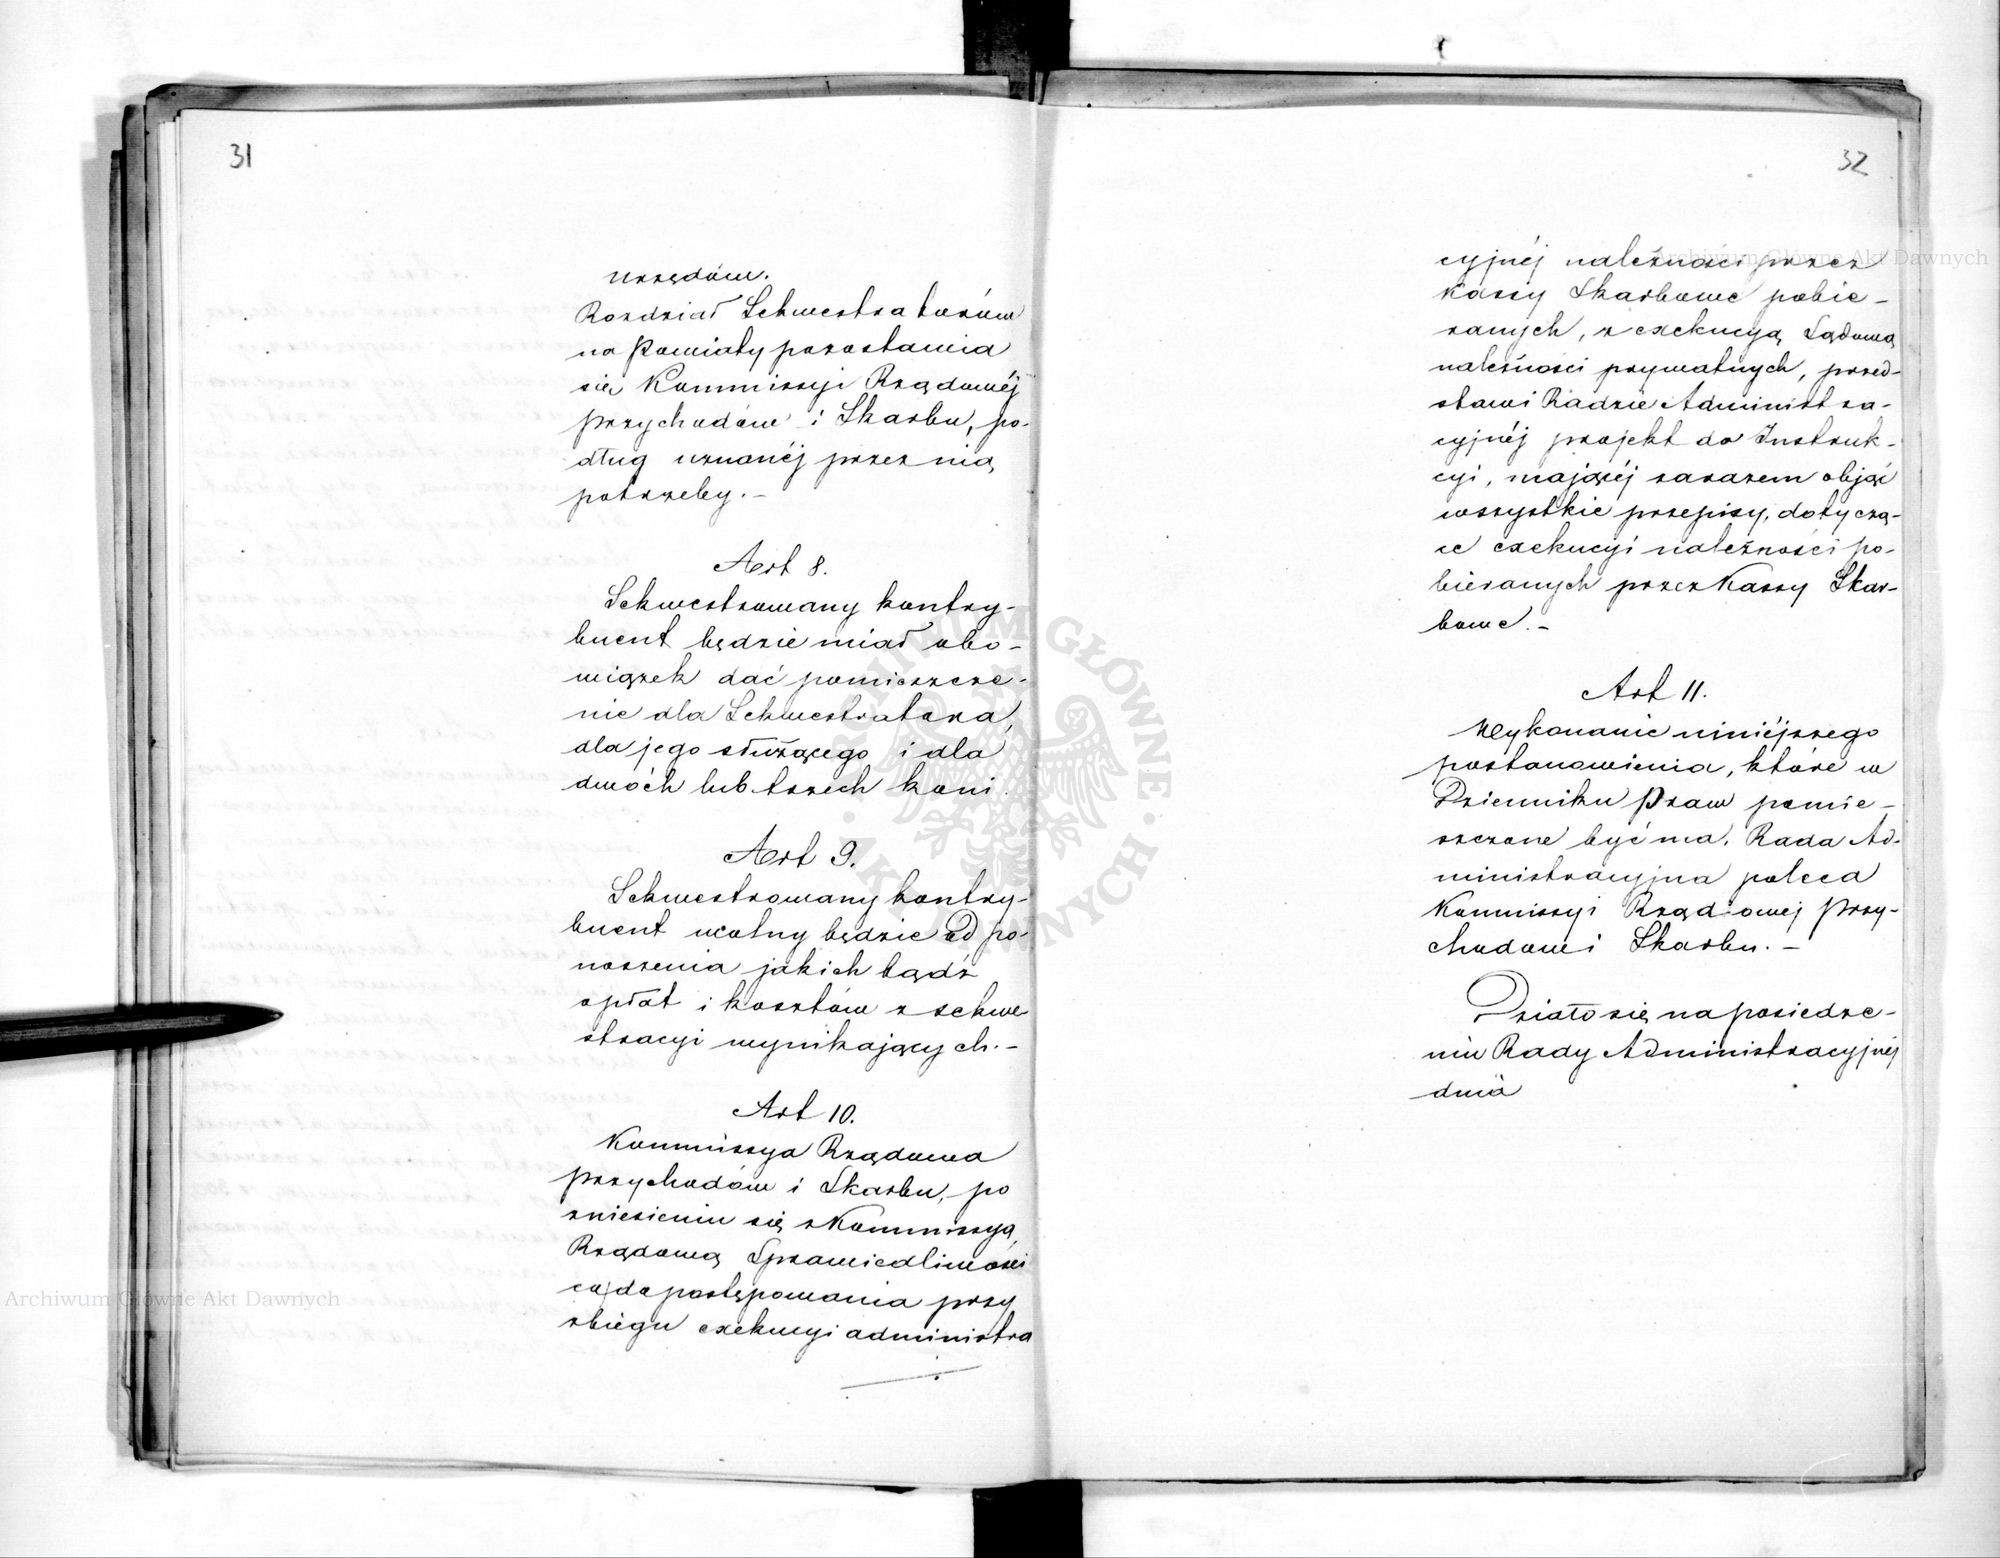 31
urzędów.
Rozdział Sekwestratorów
na Powiaty pozostawia
się Kommissyi Rządowéj
Przychodów i Skarbu, po-
dług uznanéj przez nią
potrzeby. -
Art 8.
Sekwestrowany kontry-
buent będzie miał obo-
wiązek dać pomieszcze-
nie dla Sekwestratora,
dla jego służącego i dla
dwóch lub trzech koni.
Art 9.
Sekwestrowany kontry-
buent wolny będzie od po-
noszenia jakich bądź
opłat i kosztów z sekwe-
stracyi wynikających. -
Art 10.
Kommissya Rządowa
Przychodów i Skarbu, po
zniesieniu się z Kommissyą
Rządową Sprawiedliwości
co do postępowania przy
zbiegu exekucyi administra
32
cyjnéj należności przez
Kassy Skarbowe pobie-
ranych, z exekucyą Sądową
należności prywatnych, przed-
stawi Radzie Administra-
cyjnéj projekt do Instruk-
cyi, mającéj zarazem objąć
wszystkie przepisy, dotyczą-
ce exekucyi należności po-
bieranych przez Kassy Skar-
bowe. -
Art 11.
Wykonanie niniéjszego
postanowienia, które w
Dzienniku Praw pomie-
szczone być ma, Rada Ad-
ministracyjna poleca
Kommissyi Rządowej Przy-
chodów i Skarbu. -
Działo się na posiedze-
niu Rady Administracyjnéj
dnia
Archiwum Główne Akt Dawnych
ARCHIWUM GŁÓWNE AKT DAWNYCH
Archiwum Główne Akt Dawnych